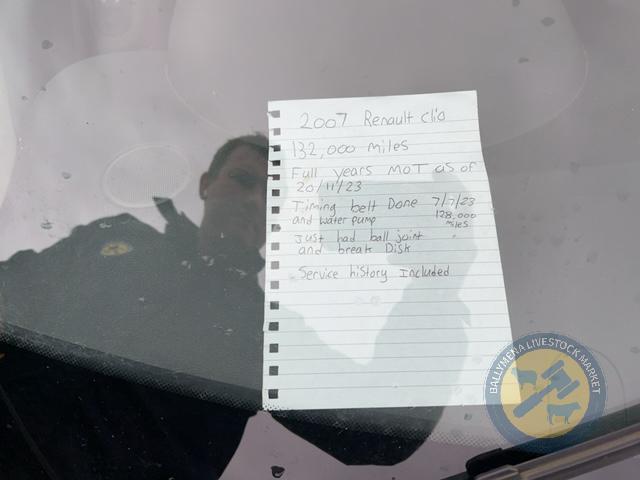 2007 Renault Clio
132,000 miles
Full years MOT as of
20/11/23
Timing belt Done 7/7/23
and water pump 128,000
miles
Just had ball joint "
and break Disk
Service history Included
BALLYMENA LIVESTOCK MARKET